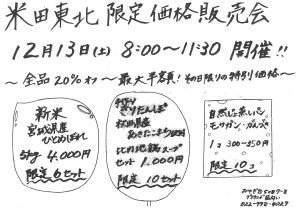 米田東北 限定価格販売会
12月13日(土) 8:00〜11:30 開催!!
〜全品20%オフ〜最大半額! その日限りの特別価格〜
新米
宮城県産
ひとめぼれ
5kg 4,000円
限定6セット
手作り
きりたんぽ
秋田県産
あきたこまち使用
比内地鶏スープ
セット 1,000円
限定 10セット
自然しょ蒸しパン
モサガン・カンズ
1コ 300〜350円
限定 10コ